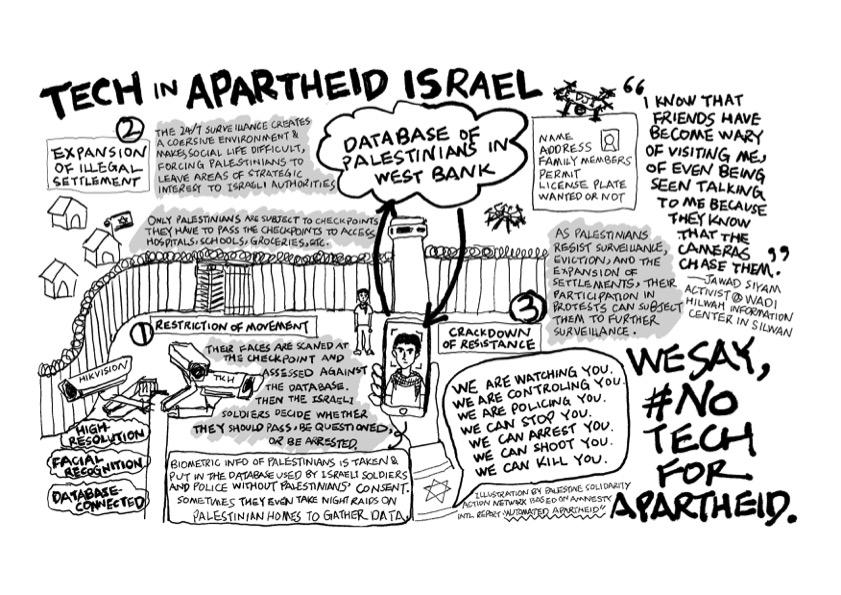 TECH IN APARTHEID ISRAEL
②
EXPANSION
OF ILLEGAL
SETTLEMENT
THE 24/7 SURVEILLANCE CREATES
A COERSIVE ENVIRONMENT &
MAKES SOCIAL LIFE DIFFICULT,
FORCING PALESTINIANS TO
LEAVE AREAS OF STRATEGIC
INTEREST TO ISRAELI AUTHORITIES
ONLY PALESTINIANS ARE SUBJECT TO CHECKPOINTS
THEY HAVE TO PASS THE CHECKPOINTS TO ACCESS
HOSPITALS, SCHOOLS, GROCERIES, ETC.
DATABASE OF
PALESTINIANS IN
WEST BANK
DJI
NAME
ADDRESS
FAMILY MEMBERS
PERMIT
LICENSE PLATE
WANTED OR NOT
“I KNOW THAT
FRIENDS HAVE
BECOME WARY
OF VISITING ME,
OF EVEN BEING
SEEN TALKING
TO ME BECAUSE
THEY KNOW
THAT THE
CAMERAS
CHASE THEM.”
—JAWAD SIYAM
ACTIVIST @ WADI
HILWAH INFORMATION
CENTER IN SILWAN
①
RESTRICTION OF MOVEMENT
THEIR FACES ARE SCANED AT
THE CHECKPOINT AND
ASSESSED AGAINST
THE DATABASE.
THEN THE ISRAELI
SOLDIERS DECIDE WHETHER
THEY SHOULD PASS, BE QUESTIONED,
OR BE ARRESTED.
HIKVISION
TKH
HIGH-
RESOLUTION
FACIAL
RECOGNITION
DATABASE-
CONNECTED
BIOMETRIC INFO OF PALESTINIANS IS TAKEN &
PUT IN THE DATABASE USED BY ISRAELI SOLDIERS
AND POLICE WITHOUT PALESTINIANS' CONSENT.
SOMETIMES THEY EVEN TAKE NIGHT RAIDS ON
PALESTINIAN HOMES TO GATHER DATA.
③
CRACKDOWN
OF RESISTANCE
AS PALESTINIANS
RESIST SURVEILLANCE,
EVICTION, AND THE
EXPANSION OF
SETTLEMENTS, THEIR
PARTICIPATION IN
PROTESTS CAN SUBJECT
THEM TO FURTHER
SURVEILLANCE.
WE ARE WATCHING YOU.
WE ARE CONTROLING YOU.
WE ARE POLICING YOU.
WE CAN STOP YOU.
WE CAN ARREST YOU.
WE CAN SHOOT YOU.
WE CAN KILL YOU.
WE SAY,
#NO
TECH
FOR
APARTHEID.
ILLUSTRATION BY PALESTINE SOLIDARITY
ACTION NETWORK BASED ON AMNESTY
INTL REPORT "AUTOMATED APARTHEID"